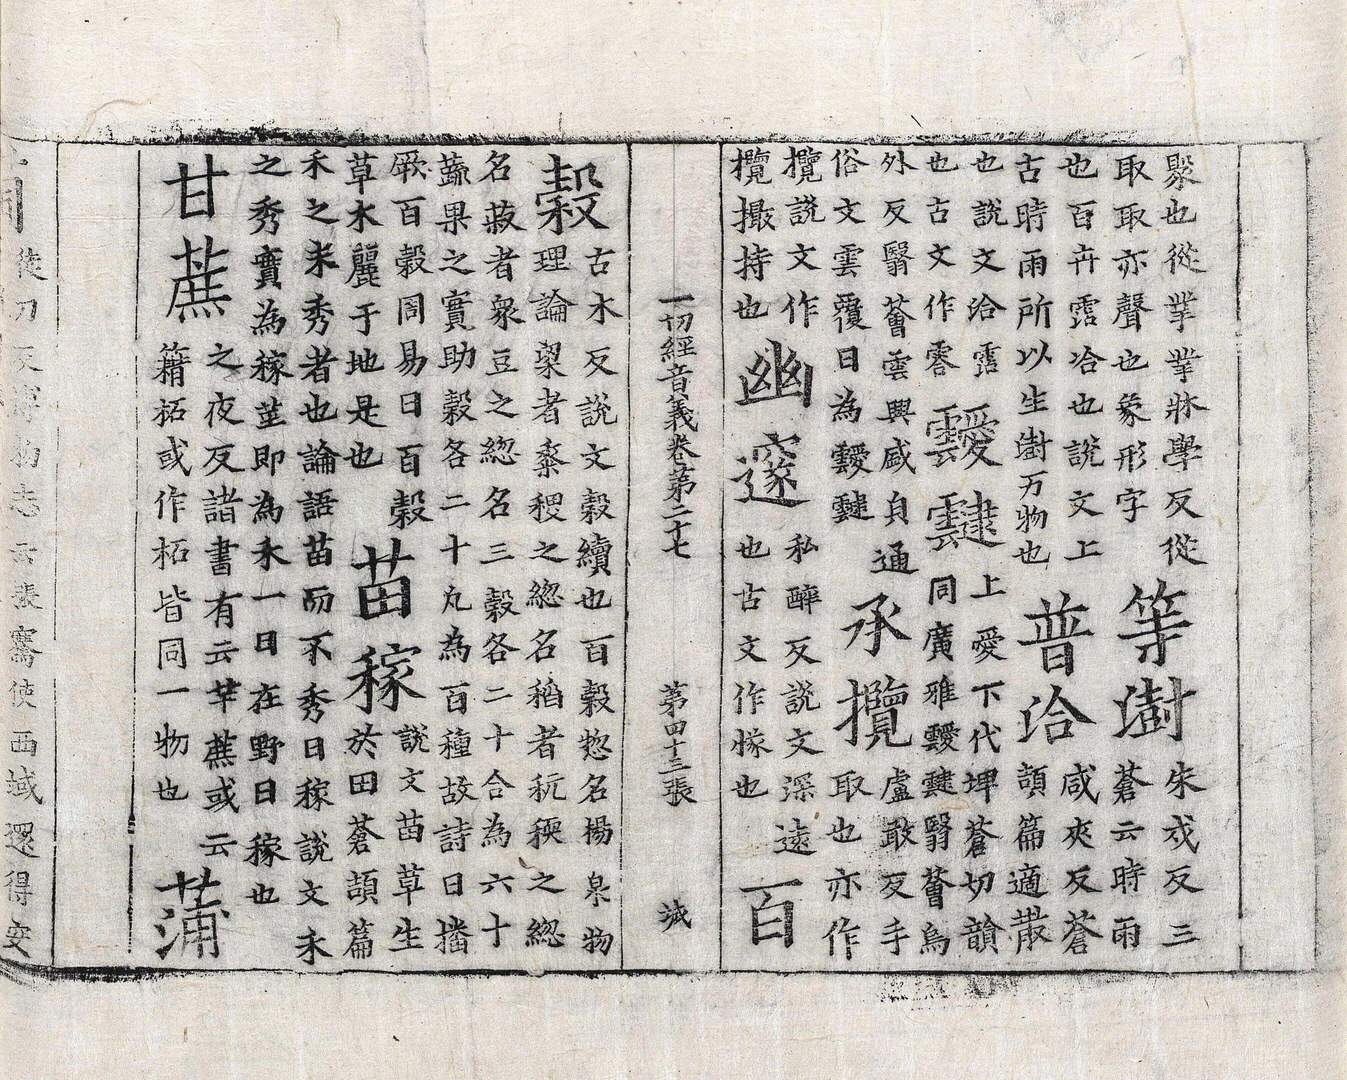 聚也從丵丵牀學反從
取取亦聲也象形字
等澍
朱戍反三
蒼云時雨
也百卉霑洽也說文上
古時雨所以生澍万物也
普洽
咸夾反蒼
頡篇適散
也說文洽霑
也古文作霗
靉靆
上愛下代埤蒼切韻
同廣雅靉靆翳薈烏
外反翳薈雲興盛貞通
俗文雲覆日為靉靆
承攬
盧敢反手
取也亦作
攬說文作
攬撮持也
幽邃
私醉反說文深遠
也古文作㥞也
百
一切經音義卷第二十七 第四十三張 滅
穀
古木反說文穀續也百穀惣名楊泉物
理論粱者黍稷之總名稻者秔稬之總
名菽者衆豆之總名三穀各二十合為六十
蔬果之實助穀各二十凡為百種故詩曰播
厥百穀周易曰百穀
草木麗于地是也
苗稼
說文苗草生
於田蒼頡篇
禾之未秀者也論語苗而不秀曰稼說文禾
之秀實為稼莖即為禾一曰在野曰稼也
甘蔗
之夜反諸書有云竿蔗或云
籍柘或作柘皆同一物也
蒲